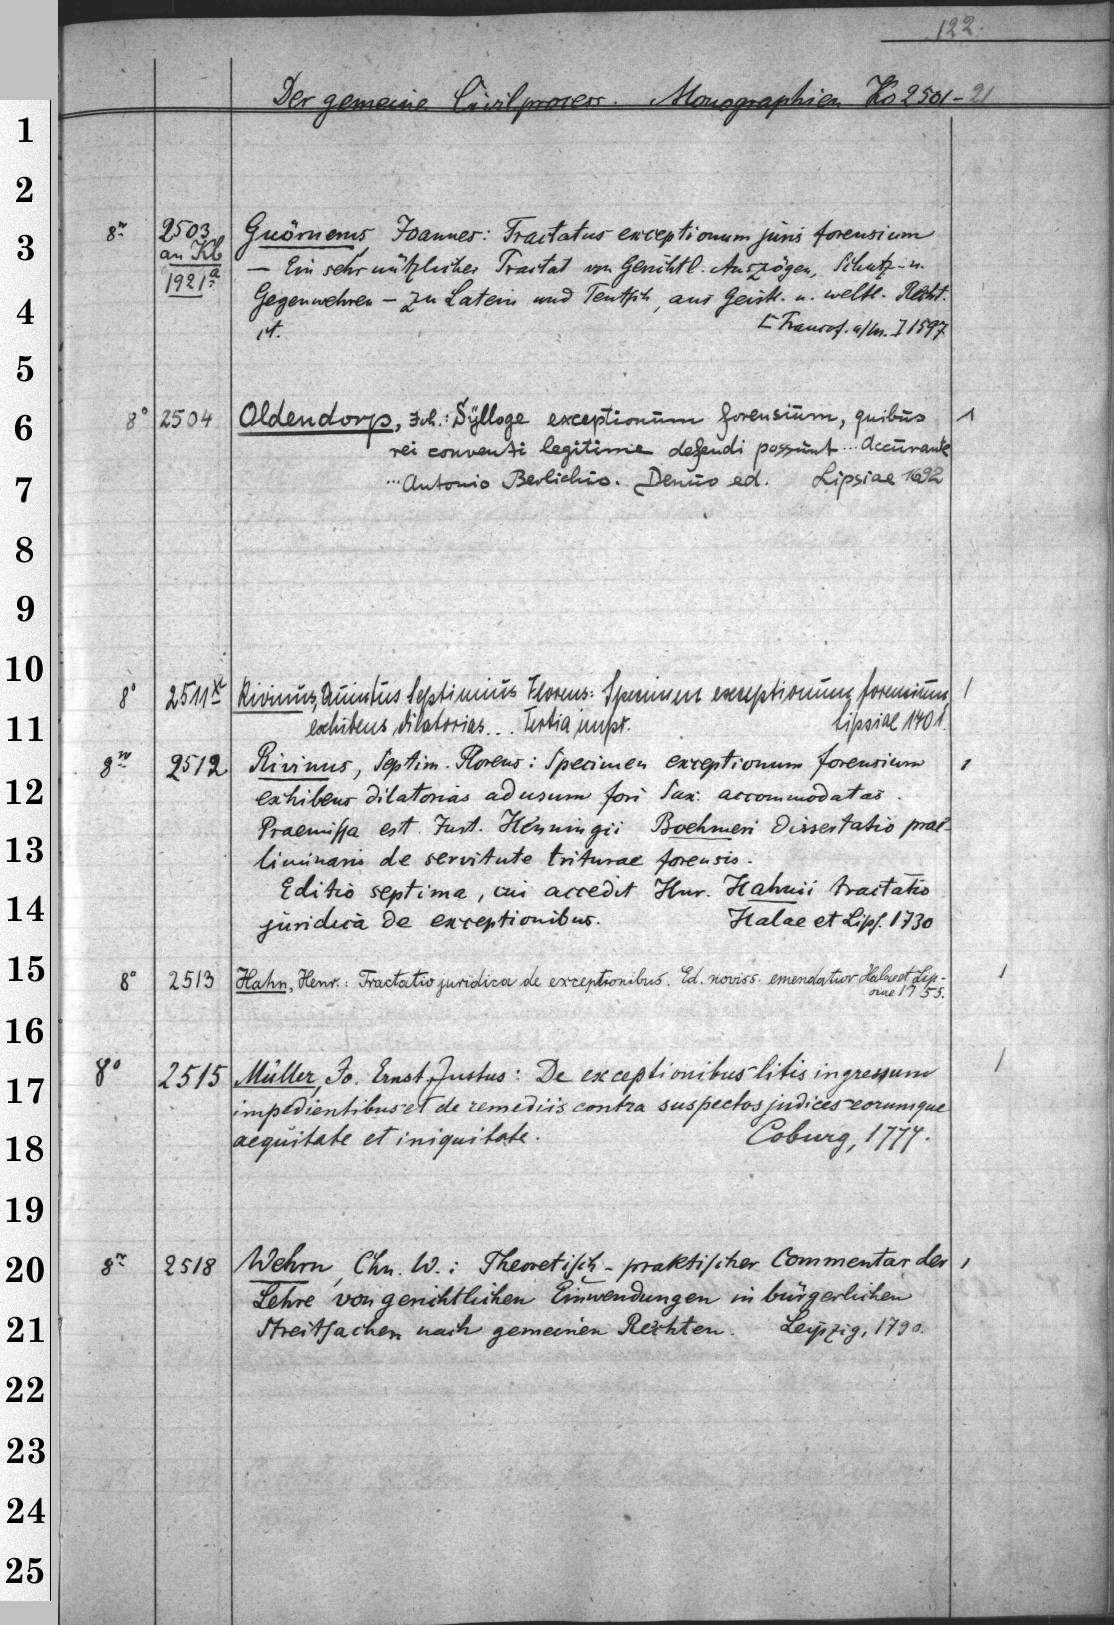 122.
Der gemeine Civilprocess. Monographien Ko 2501-21
1
2
3
4
5
6
7
8
9
10
11
12
13
14
15
16
17
18
19
20
21
22
23
24
25
8° 2503 Guörnerus, Joannes: Tractatus exceptionum juris forensium
an Kb — Ein sehr nützlicher Tractat von Gerichtl. Auszögen, Schutz- u.
1921a Gegenwehren — zu Latein und Teutsch, aus Geistl. u. weltl. Recht.
[Francof. a/m.] 1597
8° 2504 Oldendorp, Joh.: Sylloge exceptionum forensium, quibus 1
rei conventi legitime defendi possunt ... Accurante
... Antonio Berlichio. Denuo ed. Lipsiae 1692
8° 2511 Rivinus, Quintus Septimius Florens: Specimen exceptionum forensium, 1
exhibens dilatorias... Tertia impr. Lipsiae 1701.
8° 2512 Rivinus, Septim. Florens: Specimen exceptionum forensium 1
exhibens dilatorias ad usum fori Sax. accommodatas.
Praemissa est Just. Henningii Boehmeri Dissertatio prae-
liminaris de servitute triturae forensis.
Editio septima, cui accedit Henr. Hahnii tractatio
juridica de exceptionibus. Halae et Lips. 1730
8° 2513 Hahn, Henr.: Tractatio juridica de exceptionibus. Ed. noviss. emendatior Halae et Lip- 1
siae 1755.
8° 2515 Müller, Jo. Ernst Justus: De exceptionibus litis ingressum 1
impedientibus et de remediis contra suspectos judices eorumque
aequitate et iniquitate. Coburg, 1777.
8° 2518 Wehrn, Chn. W.: Theoretisch-praktischer Commentar der 1
Lehre von gerichtlichen Einwendungen in bürgerlichen
Streitsachen nach gemeinen Rechten. Leipzig, 1790.